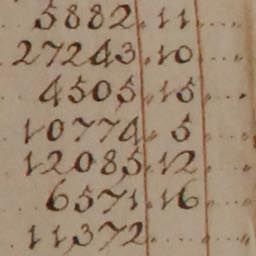 5882.11....
27243.10....
4505.15....
10774.5....
12085.12....
6571.16....
11372.........